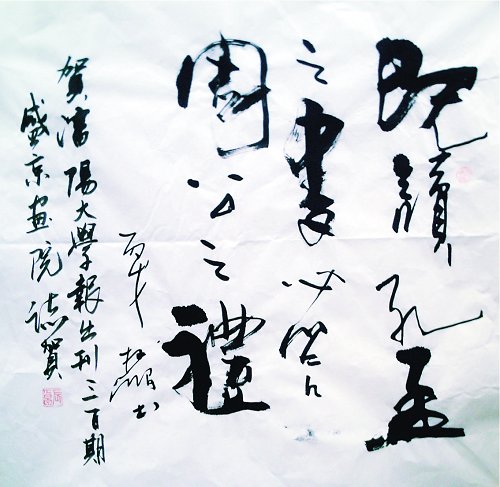 既讀孔孟
之書必
周公之禮
書
賀瀋陽大學報出刊三百期
盛京畫院誌賀